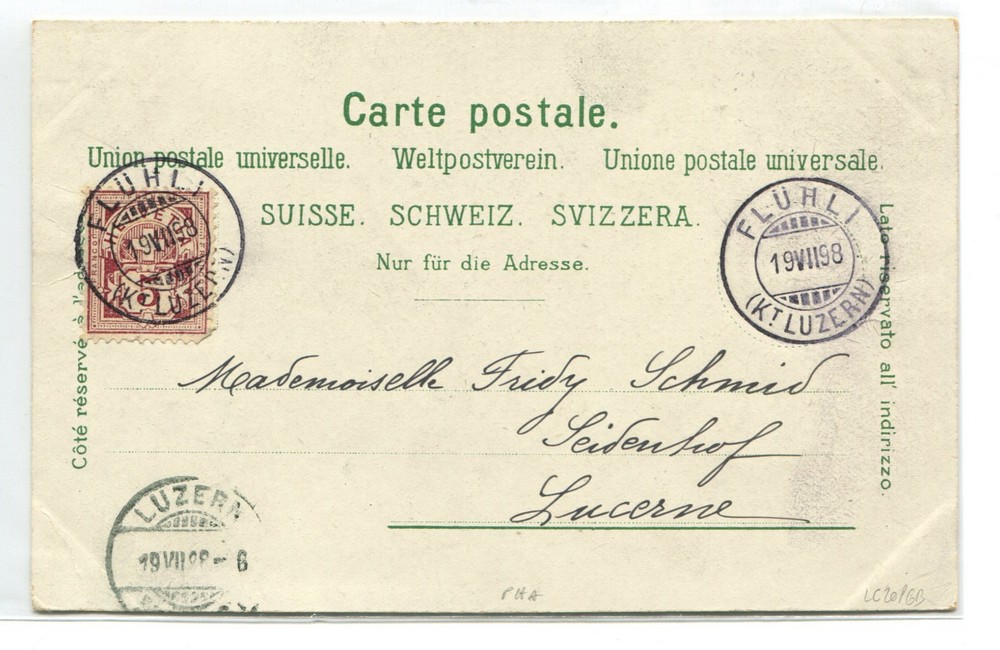 Carte postale.
Union postale universelle. Weltpostverein. Unione postale universale.
SUISSE. SCHWEIZ. SVIZZERA.
Nur für die Adresse.
FLÜHLI
19 VII 98
(KT LUZERN)
HELVETIA
FRANCO
5
FLÜHLI
19 VII 98
(KT LUZERN)
Côté réservé à l'ad
Lato riservato all' indirizzo.
Mademoiselle Fridy Schmid
Seidenhof
Lucerne
LUZERN
19 VII 98 - 6
PHA